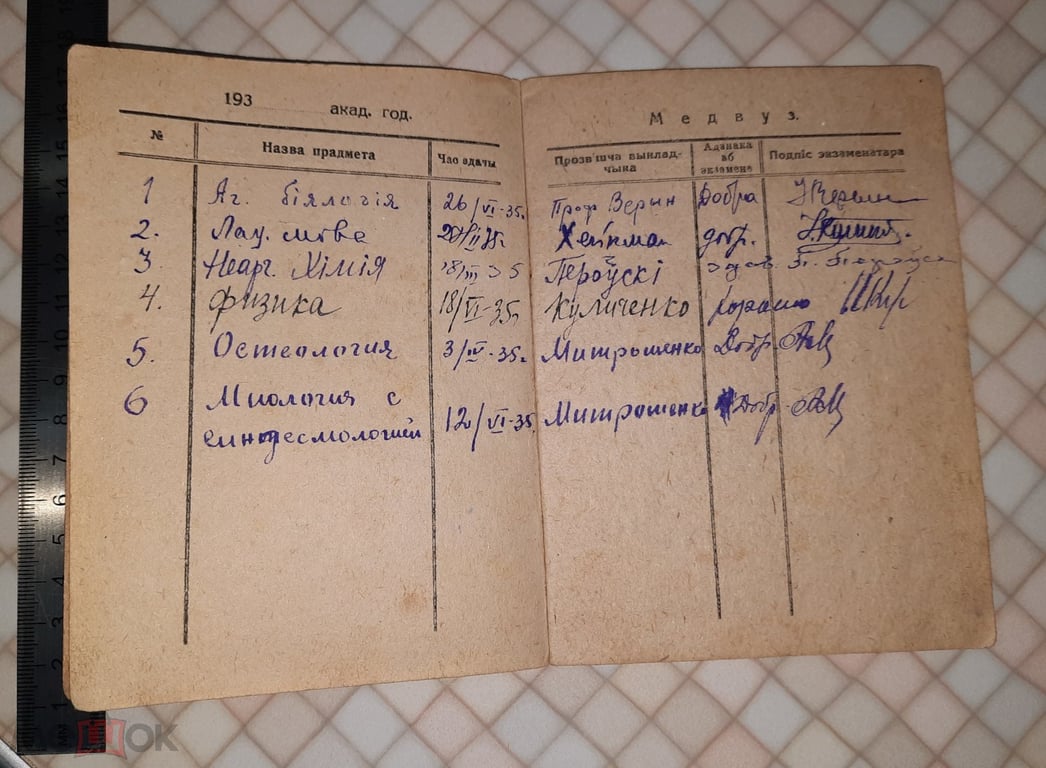 193 акад. год.
Медвуз.
№ Назва прадмета Час здачы Прозвішча выкладчыка Адзнака аб экзамене Подпіс экзаменатара
1 Аг. біялогія 26/VI-35г. Проф Верын Добра
2. Лац. мова Хейкман добр.
3. Неарг. Хімія 18/III 35 Пероўскі здав.
4. Физика 18/VI-35г Куличенко хорошо
5. Остеология 3/IV-35г. Митрошенко Добр.
6 Миология с
синдесмологией 12/VI-35 Митрошенко Добр.